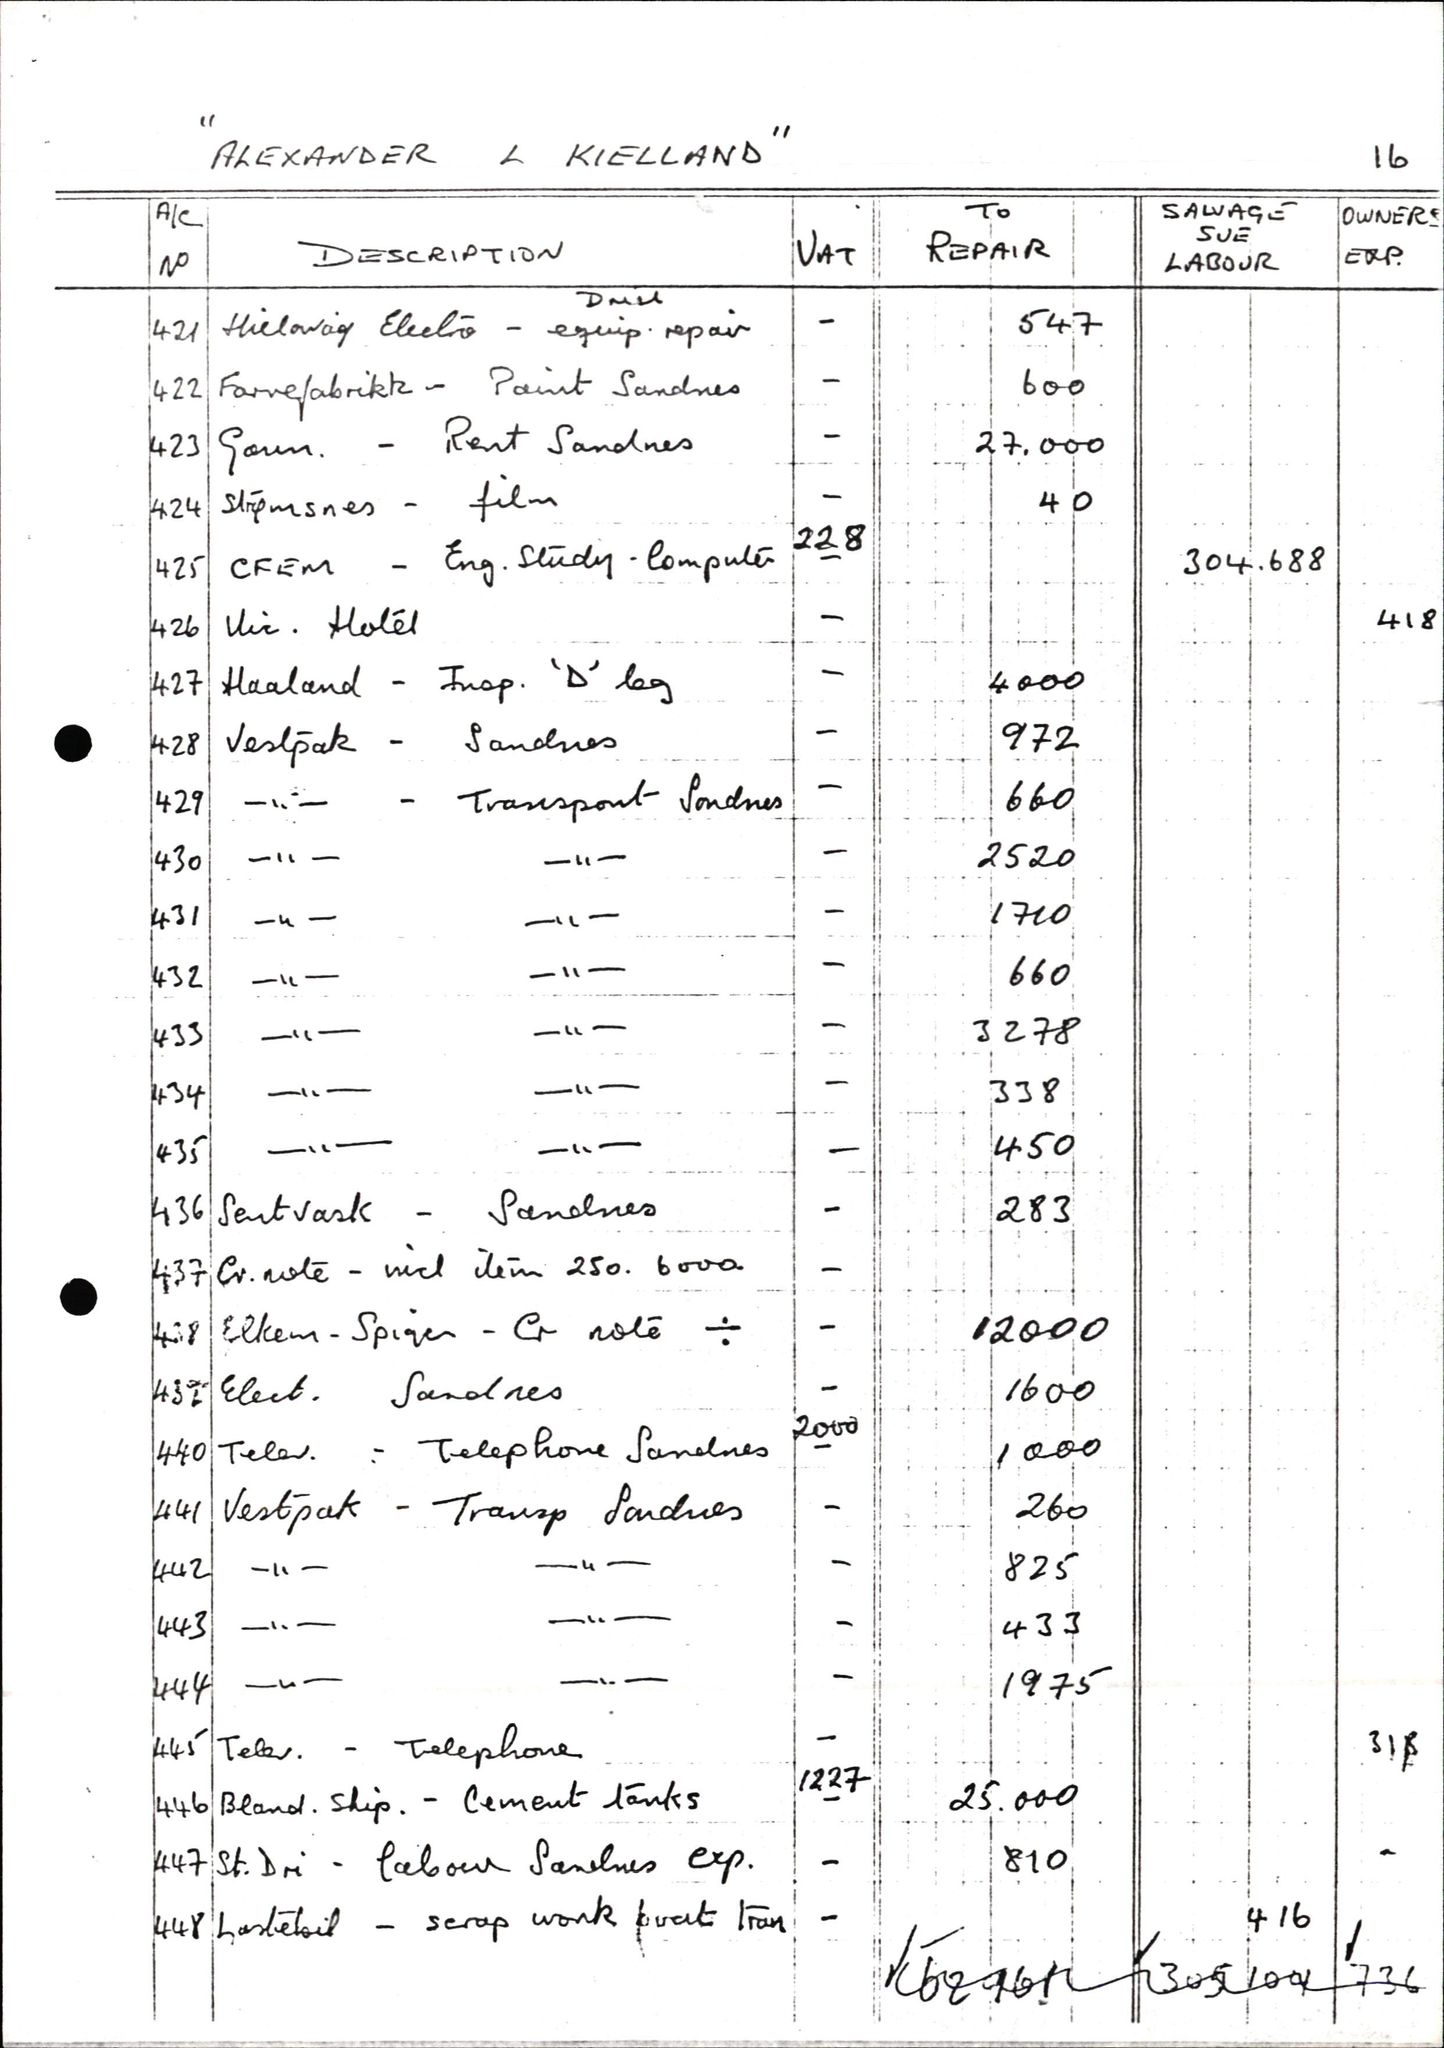 "ALEXANDER L KIELLAND" 16
A/C NO DESCRIPTION VAT TO REPAIR SALVAGE SUE LABOUR OWNERS EXP.
421 Electro - equip. repair - 547
422 Farvefabrikk - Paint Sandnes - 600
423 - Rent Sandnes - 27.000
424 Strømsnes - film - 40
425 CFEM - Eng. Study - Computer 228 304.688
426 Vic. Hotel - 418
427 Haaland - Insp. 'D' leg - 4000
428 Vestpak - Sandnes - 972
429 —"— - Transport Sandnes - 660
430 —"— —"— - 2520
431 —"— —"— - 1710
432 —"— —"— - 660
433 —"— —"— - 3278
434 —"— —"— - 338
435 —"— —"— - 450
436 Sentvask - Sandnes - 283
437 Cr. note - incl item 250. 6000 -
438 Elkem - Spiger - Cr note ÷ - 12000
Elect. Sandnes - 1600
440 Telev. - Telephone Sandnes 2000 1000
441 Vestpak - Transp Sandnes - 260
442 —"— —"— - 825
443 —"— —"— - 433
444 —"— —"— - 1975
445 Telev. - Telephone - 318
446 Bland. Ship. - Cement tanks 1227 25.000
447 St. Dri - labour Sandnes exp. - 810 -
448 Lastebil - scrap work tran - 416
62961 305104 736